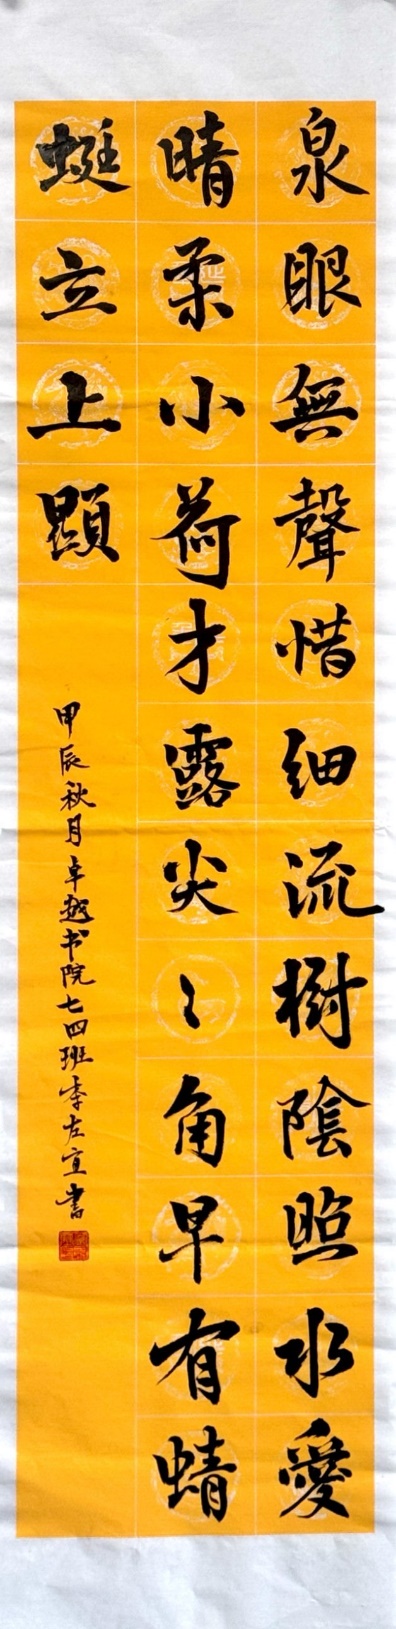 泉眼無聲惜细流樹陰照水愛
晴柔小荷才露尖〻角早有蜻
蜓立上顕
甲辰秋月卓越书院七四班李左宜書